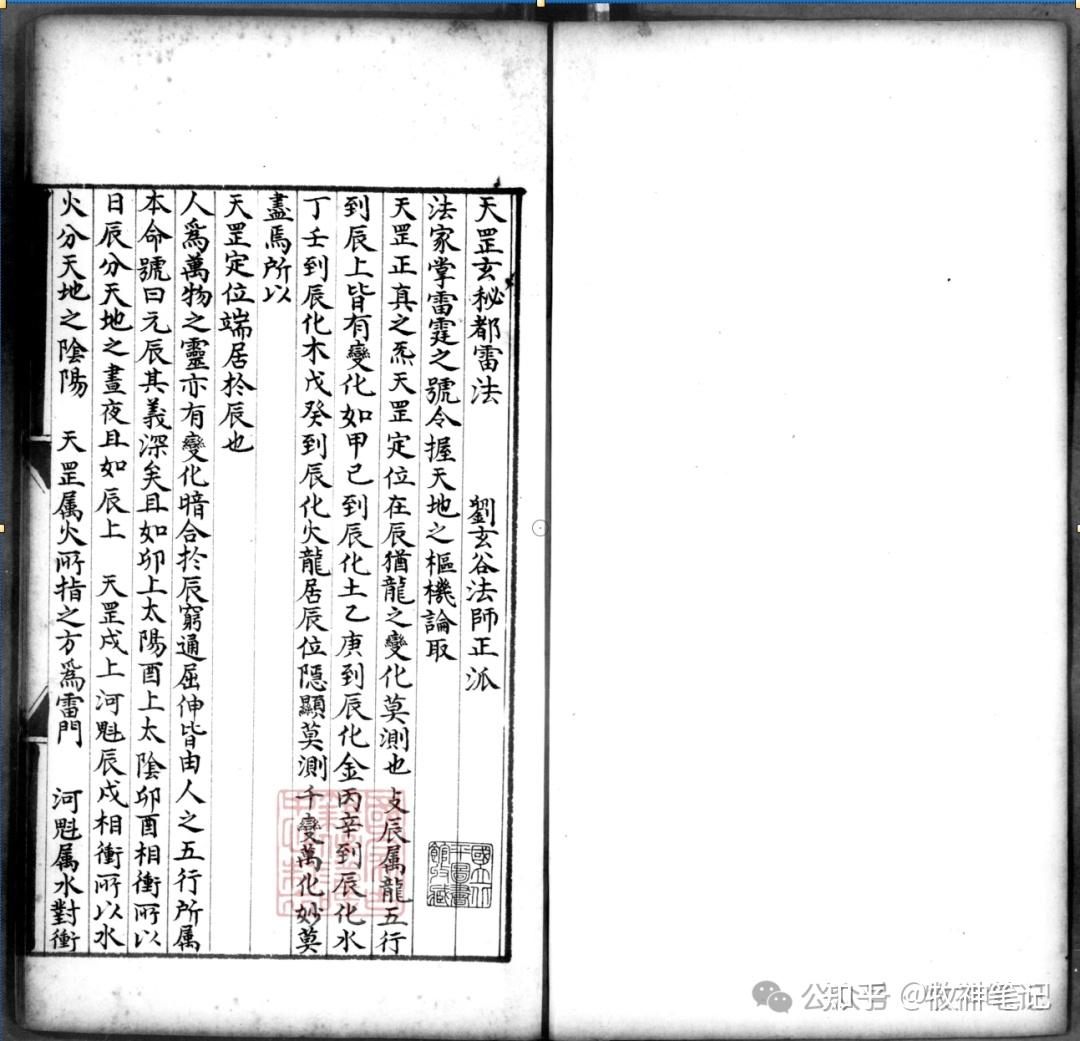 天罡玄秘都雷法　劉玄谷法師正派
法家掌雷霆之號令握天地之樞機論取
天罡正真之炁天罡定位在辰猶龍之變化莫測也　攴辰属龍五行
到辰上皆有變化如甲已到辰化土乙庚到辰化金丙辛到辰化水
丁壬到辰化木戊癸到辰化火龍居辰位隱顯莫測千變萬化妙莫
盡焉所以
天罡定位端居於辰也
人爲萬物之靈亦有變化暗合於辰窮通屈伸皆由人之五行所属
本命號曰元辰其義深矣且如卯上太陽酉上太陰卯酉相衝所以
日辰分天地之晝夜且如辰上　天罡戌上河魁辰戌相衝所以水
火分天地之陰陽　天罡属火所指之方爲雷門　河魁属水對衝
國立北
平圖書
館收藏
公知乎 @牧神笔记